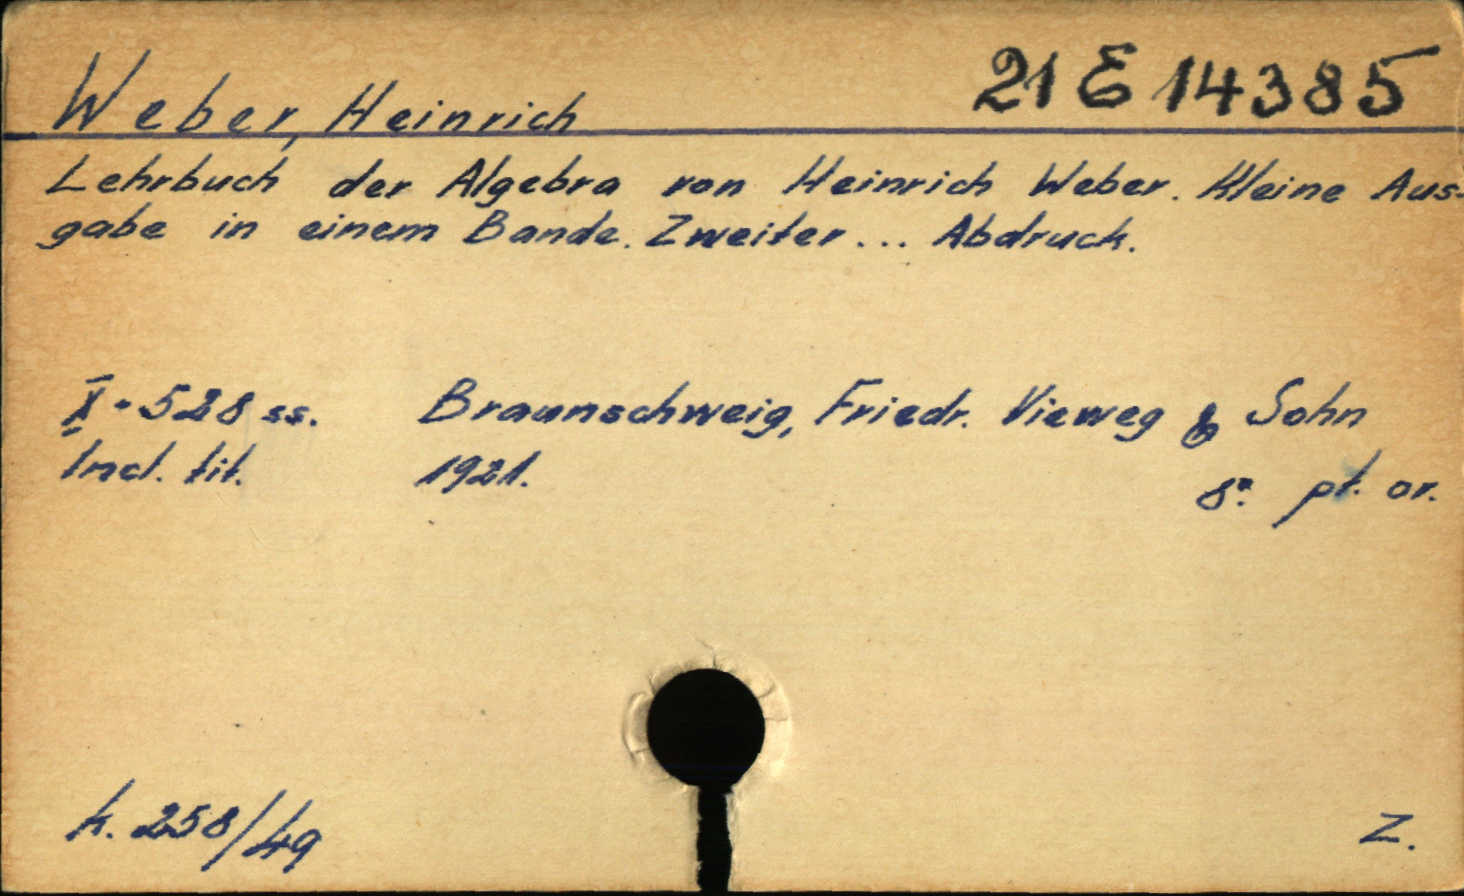 Weber, Heinrich
21 E 14385
Lehrbuch der Algebra von Heinrich Weber. Kleine Aus-
gabe in einem Bande. Zweiter ... Abdruck.
X • 528 ss. Braunschweig, Friedr. Vieweg & Sohn
Incl. tit. 1921. 8° pt. or.
k. 258/49
Z.